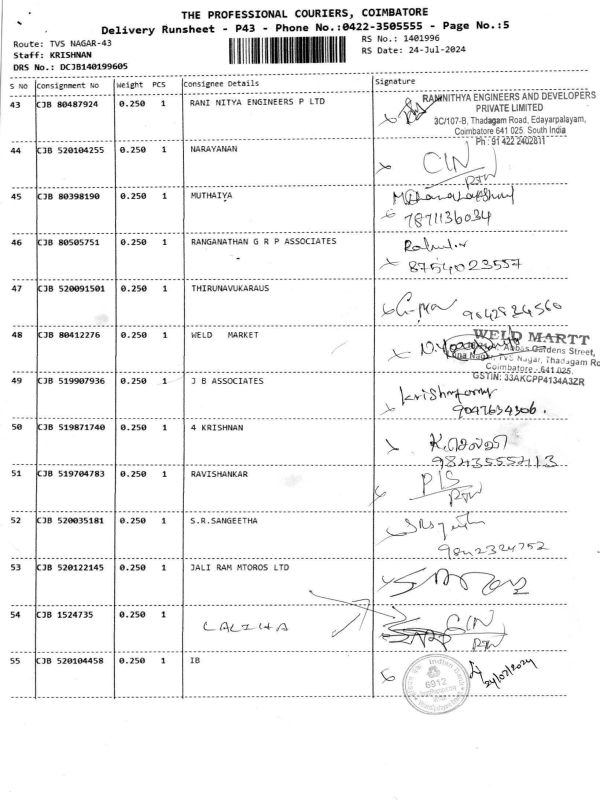 THE PROFESSIONAL COURIERS, COIMBATORE
Delivery Runsheet - P43 - Phone No.:0422-3505555 - Page No.:5
Route: TVS NAGAR-43
RS No.: 1401996
Staff: KRISHNAN
RS Date: 24-Jul-2024
DRS No.: DCJB140199605
S NO Consignment No Weight PCS Consignee Details Signature
43 CJB 80487924 0.250 1 RANI NITYA ENGINEERS P LTD
RANINITHYA ENGINEERS AND DEVELOPERS
PRIVATE LIMITED
3C/107-B, Thadagam Road, Edayarpalayam,
Coimbatore 641 025. South India
Ph : 91 422 2402811
44 CJB 520104255 0.250 1 NARAYANAN
CIN
RTW
45 CJB 80398190 0.250 1 MUTHAIYA
7871136034
46 CJB 80505751 0.250 1 RANGANATHAN G R P ASSOCIATES
8754023557
47 CJB 520091501 0.250 1 THIRUNAVUKARAUS
9042924560
48 CJB 80412276 0.250 1 WELD MARKET
WELD MARTT
Gardens Street,
TVS Nagar, Thadagam Ro
Coimbatore - 641 025.
GSTIN: 33AKCPP4134A3ZR
49 CJB 519907936 0.250 1 J B ASSOCIATES
9047634306.
50 CJB 519871740 0.250 1 4 KRISHNAN
51 CJB 519704783 0.250 1 RAVISHANKAR
P/S
RTW
52 CJB 520035181 0.250 1 S.R.SANGEETHA
9842324752
53 CJB 520122145 0.250 1 JALI RAM MTOROS LTD
54 CJB 1524735 0.250 1 LALITHA
CIN
RTW
55 CJB 520104458 0.250 1 IB
Indian Bank
6912
24/07/2024